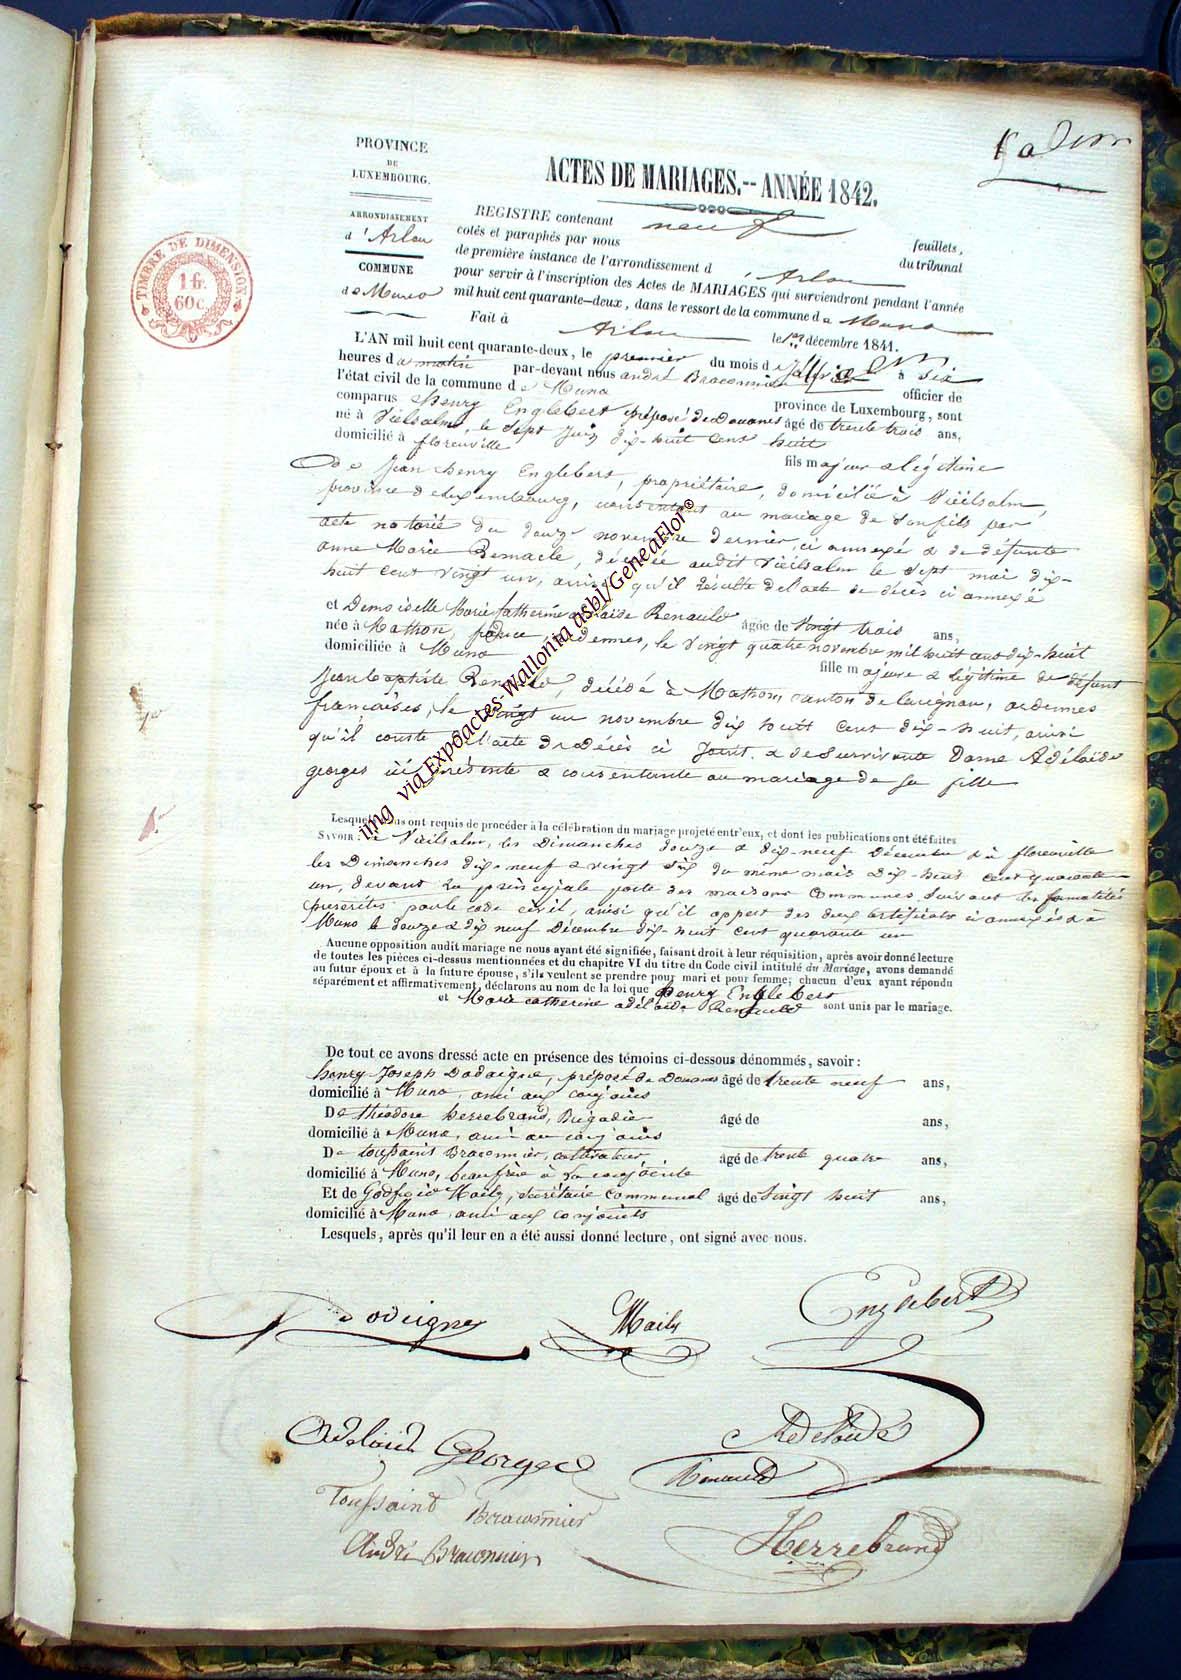 PROVINCE
DE
LUXEMBOURG.
ARRONDISSEMENT
d'Arlon
COMMUNE
de Muno
TIMBRE DE DIMENSION
1 f.
60 c.
ACTES DE MARIAGES.-- ANNÉE 1842.
REGISTRE contenant neuf feuillets,
cotés et paraphés par nous du tribunal
de première instance de l'arrondissement d'Arlon
pour servir à l'inscription des Actes de MARIAGES qui surviendront pendant l'année
mil huit cent quarante-deux, dans le ressort de la commune de Muno
Fait à Arlon le 1er décembre 1841.
L'AN mil huit cent quarante-deux, le premier du mois de à six
heures du matin par-devant nous andré Braconnier officier de
l'état civil de la commune de Muno province de Luxembourg, sont
comparus henry Englebert préposé de Douanes âgé de trente trois ans,
né à Vielsalm, le sept Juin dix-huit cent huit
domicilié à florenville fils majeur & légitime
de Jean henry Englebert, propriétaire, domicilié à Vieilsalm,
province de Luxembourg, consentant au mariage de son fils par
acte notarié du douze novembre dernier, ci annexé & de défunte
anne Marie Remacle, décédée audit Vieilsalm le sept mai dix-
huit cent vingt un, ainsi qu'il résulte de l'acte de décès ci annexé
et Demoiselle Marie Catherine adélaïde Renauld âgée de vingt trois ans,
née à Mathon, france, ardennes, le vingt quatre novembre mil huit cent dix-huit
domiciliée à Muno fille majeure & légitime de défunt
Jean baptiste Renauld, décédé à Mathon, canton de Carignan, ardennes
françaises, le vingt un novembre dix huit cent dix-huit, ainsi
qu'il conste de l'acte de décès ci joint. & de survivante Dame Adélaïde
georges ici présente & consentante au mariage de sa fille
Lesquels nous ont requis de procéder à la célébration du mariage projeté entr'eux, et dont les publications ont été faites
SAVOIR : à Vieilsalm, les Dimanches douze & dix-neuf Décembre & à florenville
les Dimanches dix-neuf & vingt six du même mois dix-huit cent quarante
un, devant la principale porte des maisons Communes suivant les formalités
prescrites par le code civil, ainsi qu'il appert des deux certificats ci annexés & à
Muno le douze & dix neuf Décembre dix-huit cent quarante un
Aucune opposition audit mariage ne nous ayant été signifiée, faisant droit à leur réquisition, après avoir donné lecture
de toutes les pièces ci-dessus mentionnées et du chapitre VI du titre du Code civil intitulé du Mariage, avons demandé
au futur époux et à la future épouse, s'ils veulent se prendre pour mari et pour femme; chacun d'eux ayant répondu
séparément et affirmativement, déclarons au nom de la loi que henry Englebert
et Marie catherine adélaïde Renauld sont unis par le mariage.
De tout ce avons dressé acte en présence des témoins ci-dessous dénommés, savoir :
henry Joseph Dodeigne, préposé de Douanes âgé de trente neuf ans,
domicilié à Muno, ami aux conjoints
De théodore herrebrand, Brigadier âgé de ans,
domicilié à Muno, ami aux conjoints
De toussaint Braconnier, cultivateur, âgé de trente quatre ans,
domicilié à Muno, beaufrère à la conjointe
Et de Godfroid Maily, secrétaire Communal âgé de vingt huit ans,
domicilié à Muno, ami aux conjoints
Lesquels, après qu'il leur en a été aussi donné lecture, ont signé avec nous.
Dodeigne Maily Englebert
Adelaide Georges Adelaide
Renauld
Toussaint Braconnier
André Braconnier Herrebrand
img via Expoactes-Wallonia asbl/GeneaFlor®